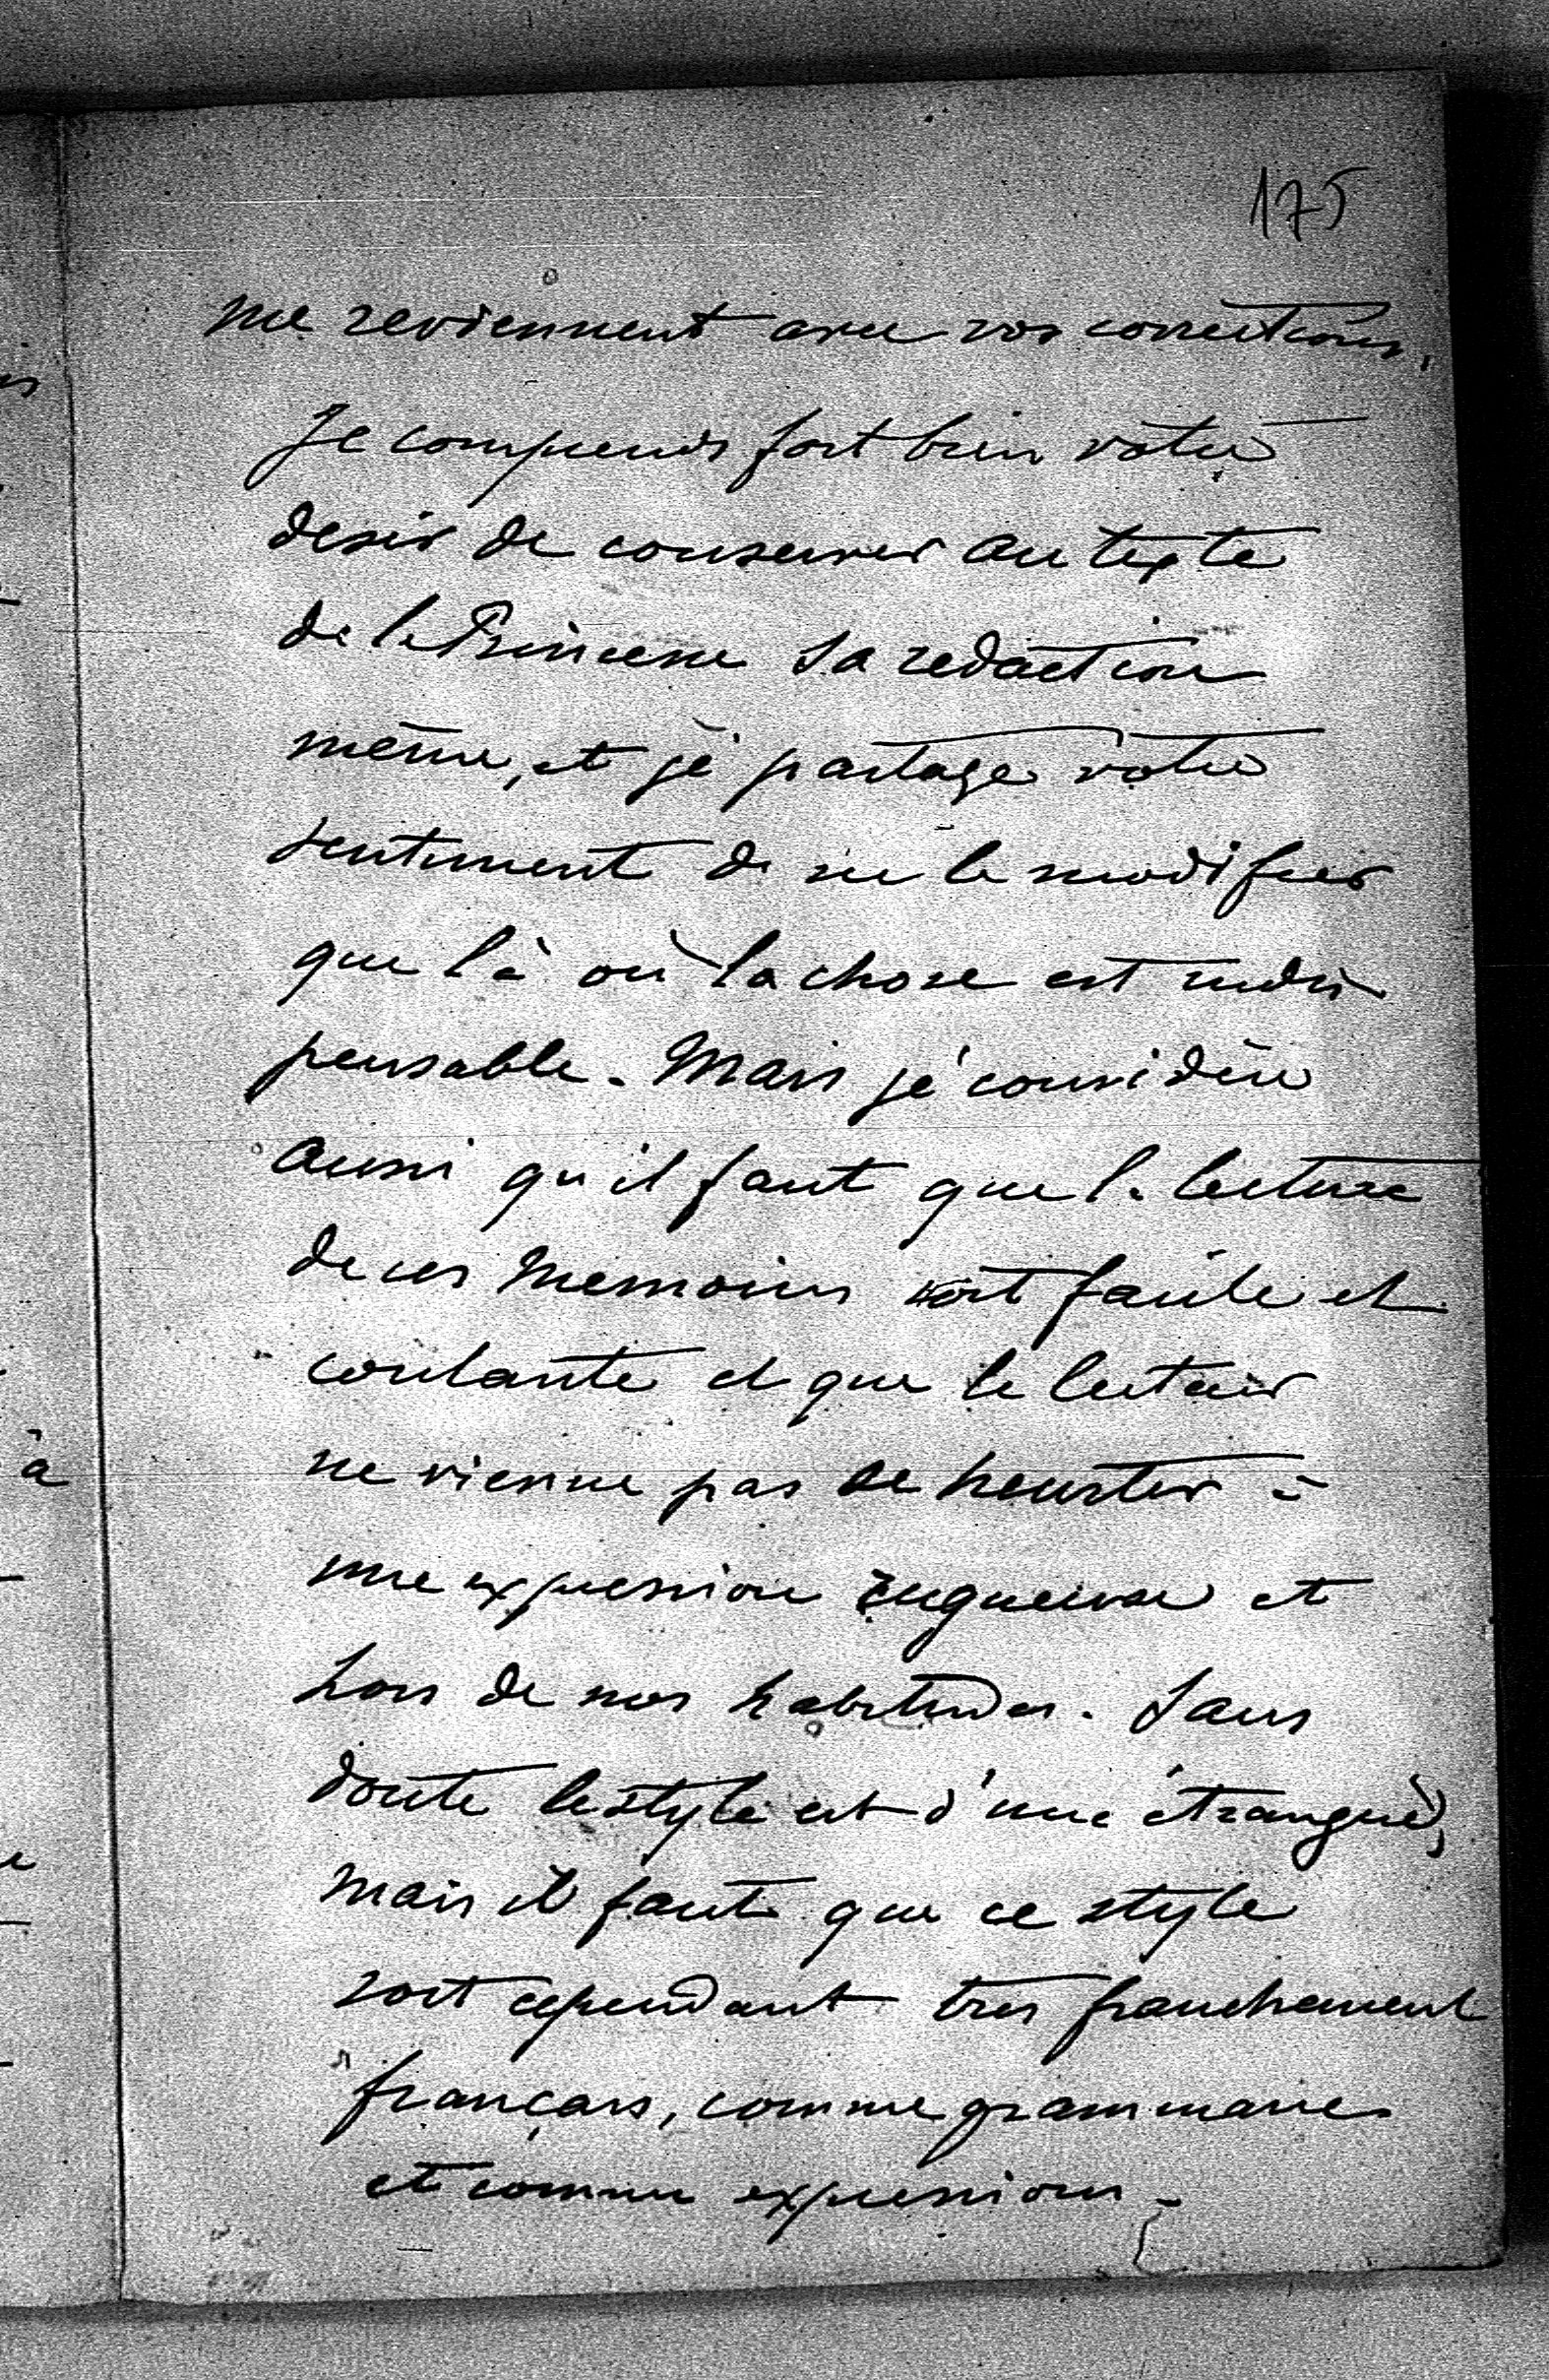 175
me reviennent avec vos corrections.
Je comprends fort bien votre
desir de conserver au texte
de la Princesse sa redaction
même, et je partage votre
sentiment de ne le modifier
que là où la chose est indis
pensable. Mais je considère
aussi qu'il faut que la lecture
de ces Memoires soit facile et
coulante et que le lecteur
ne vienne pas se heurter à
une expression rugueuse et
hors de nos habitudes. Sans
doute le style est d'une étrangère,
mais il faut que ce style
soit cependant tres franchement
français, comme grammaire
et comme expressions.
à